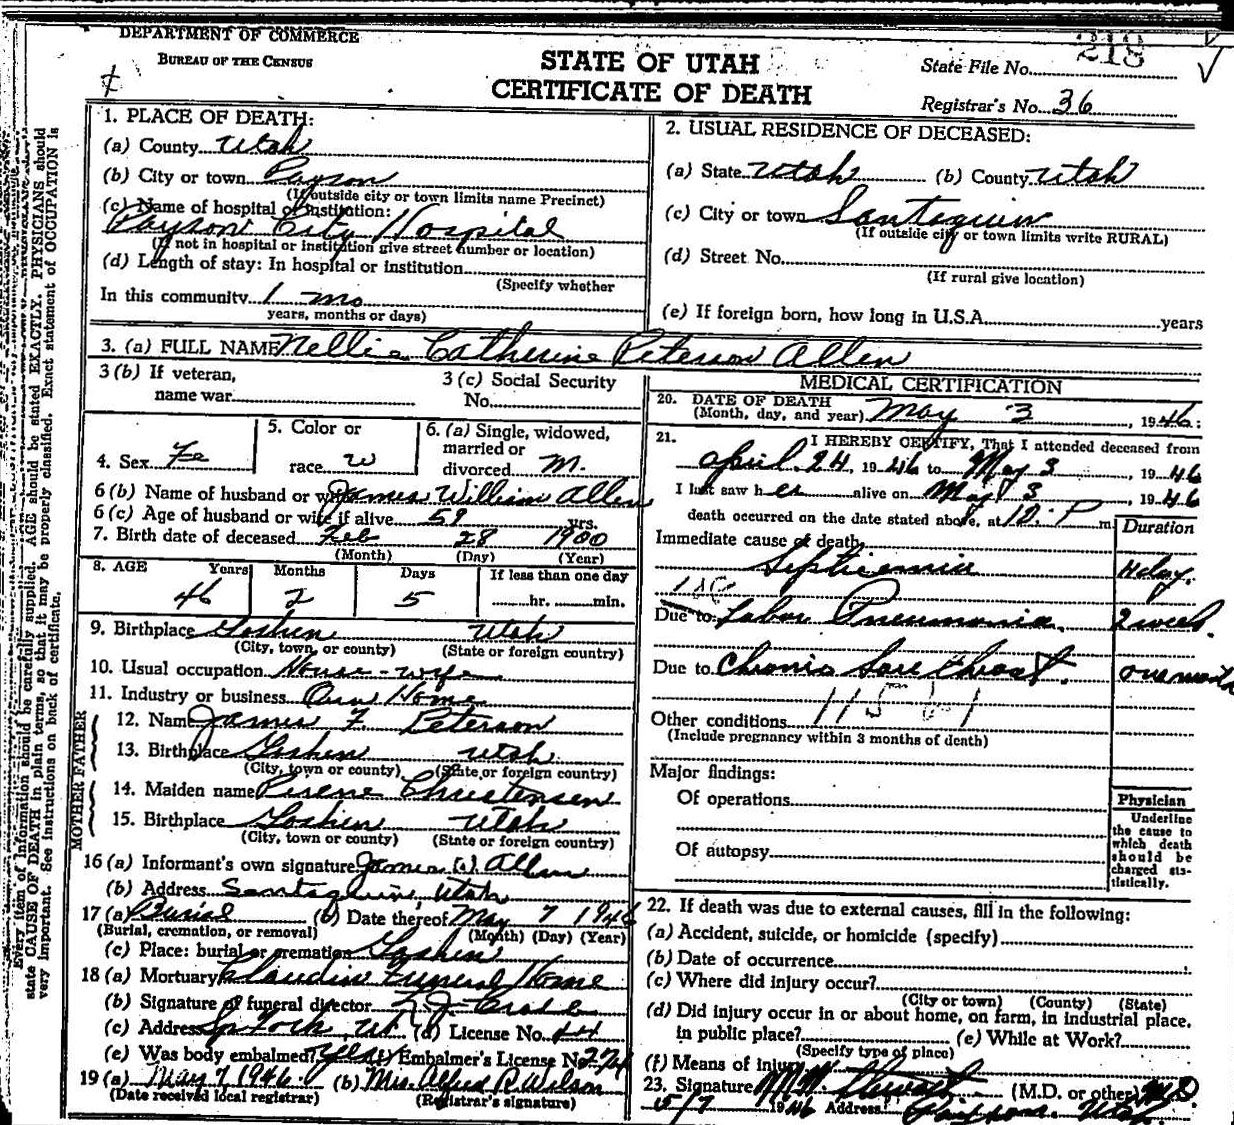 DEPARTMENT OF COMMERCE
BUREAU OF THE CENSUS
STATE OF UTAH
CERTIFICATE OF DEATH
State File No. 218
Registrar's No. 36
Every item of information should be carefully supplied. AGE should be stated EXACTLY. PHYSICIANS should
state CAUSE OF DEATH in plain terms, so that it may be properly classified. Exact statement of OCCUPATION is
very important. See instructions on back of certificate.
1. PLACE OF DEATH:
(a) County Utah
(b) City or town Payson
(If outside city or town limits name Precinct)
(c) Name of hospital or institution:
Payson City Hospital
(If not in hospital or institution give street number or location)
(d) Length of stay: In hospital or institution
(Specify whether
In this community 1 mo
years, months or days)
2. USUAL RESIDENCE OF DECEASED:
(a) State Utah (b) County Utah
(c) City or town Santaquin
(If outside city or town limits write RURAL)
(d) Street No.
(If rural give location)
(e) If foreign born, how long in U.S.A. years
3. (a) FULL NAME Nellie Catherine Peterson Allen
3 (b) If veteran,
name war
3 (c) Social Security
No.
4. Sex Fe
5. Color or
race W
6. (a) Single, widowed,
married or
divorced M.
6 (b) Name of husband or wife James William Allen
6 (c) Age of husband or wife if alive 59 yrs.
7. Birth date of deceased Feb 28 1900
(Month) (Day) (Year)
8. AGE Years Months Days If less than one day
46 2 5 hr. min.
9. Birthplace Goshen Utah
(City, town, or county) (State or foreign country)
10. Usual occupation House-wife
11. Industry or business Own Home
FATHER
12. Name James F Peterson
13. Birthplace Goshen Utah
(City, town or county) (State or foreign country)
MOTHER
14. Maiden name Christensen
15. Birthplace Goshen Utah
(City, town or county) (State or foreign country)
16 (a) Informant's own signature James W. Allen
(b) Address Santaquin, Utah
17 (a) Burial (b) Date thereof May 7 1946
(Burial, cremation, or removal) (Month) (Day) (Year)
(c) Place: burial or cremation Goshen
18 (a) Mortuary Claudin Funeral Home
(b) Signature of funeral director
(c) Address Sp Fork, Ut. (d) License No. 44
(e) Was body embalmed? Yes (f) Embalmer's License No 274
19 (a) May 7, 1946 (b) Mrs. Alfred R. Wilson
(Date received local registrar) (Registrar's signature)
MEDICAL CERTIFICATION
20. DATE OF DEATH
(Month, day, and year) May 3, 1946:
21. I HEREBY CERTIFY, That I attended deceased from
April 24, 1946 to May 3, 1946
I last saw her alive on May 3, 1946
death occurred on the date stated above, at 10: P m.
Duration
Immediate cause of death
Septicemia 4 day.
Due to Lobar Pneumonia. 2 week.
Due to Chronic Sore throat. one month
Other conditions
(Include pregnancy within 3 months of death)
Major findings:
Of operations
Of autopsy
Physician
Underline
the cause to
which death
should be
charged sta-
tistically.
22. If death was due to external causes, fill in the following:
(a) Accident, suicide, or homicide (specify)
(b) Date of occurrence
(c) Where did injury occur?
(City or town) (County) (State)
(d) Did injury occur in or about home, on farm, in industrial place,
in public place? (e) While at Work?
(Specify type of place)
(f) Means of injury
23. Signature M.W. Stewart (M.D. or other) M.D.
5/7 1946 Address Payson, Utah